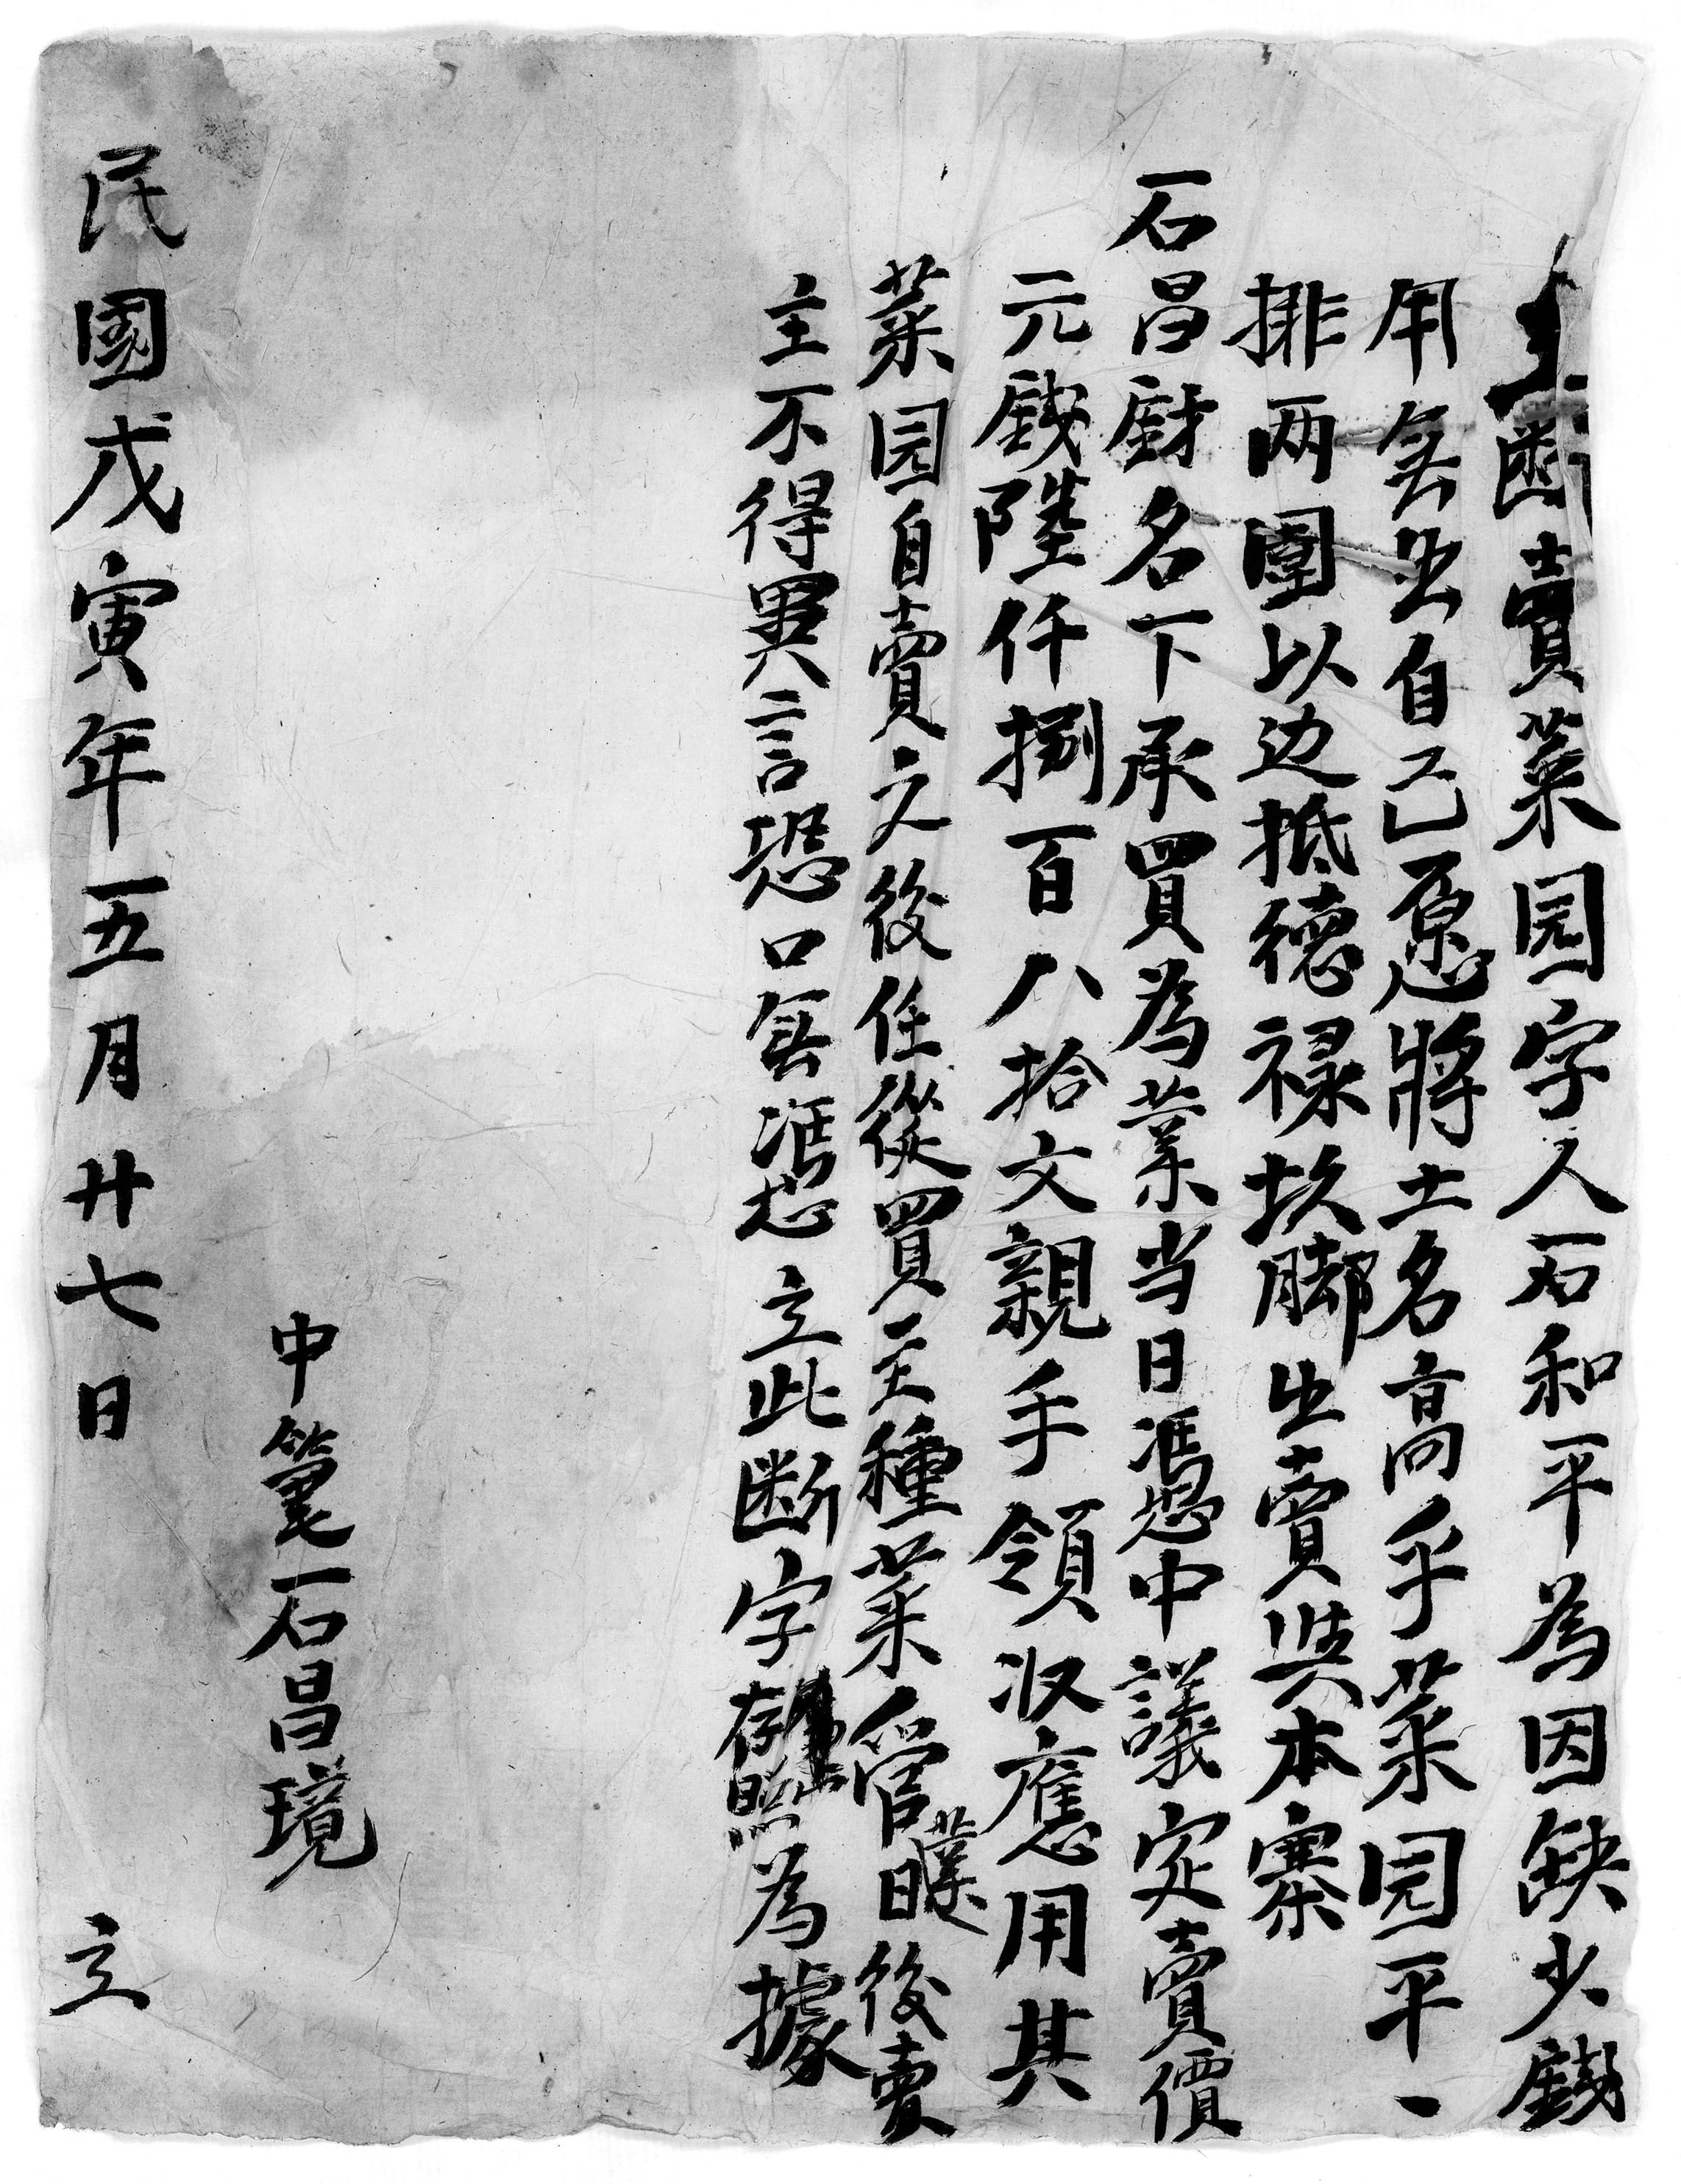 立断賣菜园字人石和平為因缺少錢
用無出自己愿將土名高乎菜园平一
排两團以边抵德禄坎脚出賣與本寨
石昌財名下承買為業当日憑中議定賣價
元錢陸仟捌百八拾文親手領收應用其
菜园自賣之後任從買主種菜管業日後賣
主不得異言恐口無憑立此断字存照為據
中筆石昌璄
民國戊寅年五月廿七日立